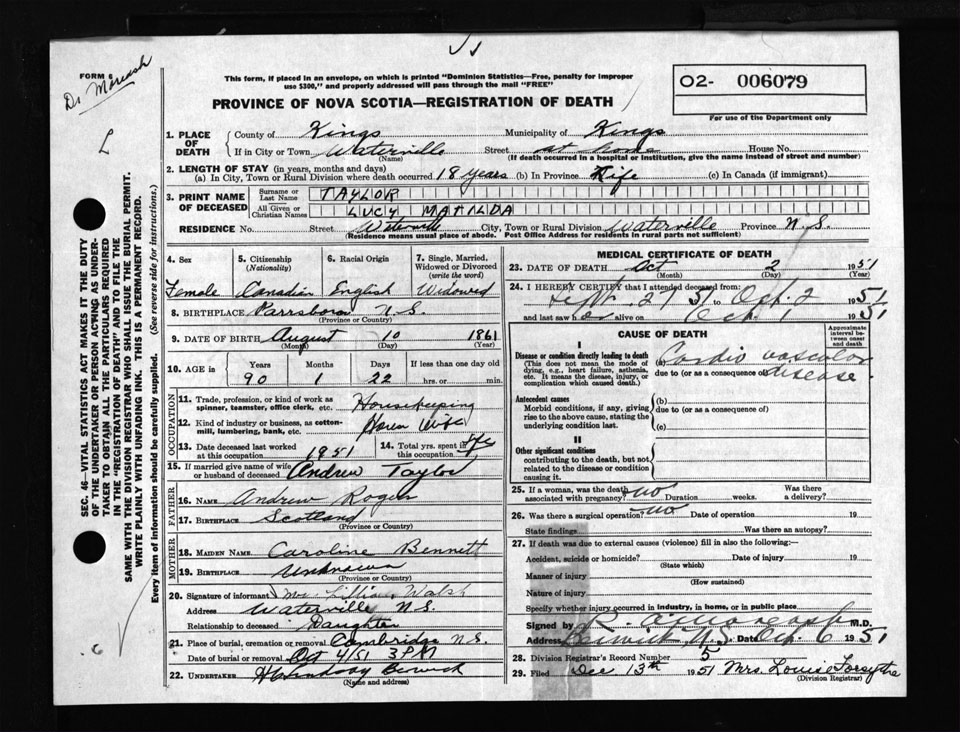 FORM 6
Dr Moreash
This form, if placed in an envelope, on which is printed "Dominion Statistics—Free, penalty for improper
use $300," and properly addressed will pass through the mail "FREE"
PROVINCE OF NOVA SCOTIA—REGISTRATION OF DEATH
O2- 006079
For use of the Department only
L
1. PLACE OF DEATH County of Kings Municipality of Kings
If in City or Town Waterville Street at home House No.
(Name) (If death occurred in a hospital or institution, give the name instead of street and number)
2. LENGTH OF STAY (in years, months and days)
(a) In City, Town or Rural Division where death occurred 18 Years (b) In Province Life (c) In Canada (if immigrant)
3. PRINT NAME OF DECEASED Surname or Last Name TAYLOR
All Given or Christian Names LUCY MATILDA
RESIDENCE No. Street Waterville City, Town or Rural Division Waterville Province N.S.
(Residence means usual place of abode. Post Office Address for residents in rural parts not sufficient)
4. Sex 5. Citizenship (Nationality) 6. Racial Origin 7. Single, Married, Widowed or Divorced (write the word)
Female Canadian English Widowed
8. BIRTHPLACE Parrsboro N.S.
(Province or Country)
9. DATE OF BIRTH August 10 1861
(Month) (Day) (Year)
10. AGE in Years Months Days If less than one day old
90 1 22 hrs. or min.
OCCUPATION
11. Trade, profession, or kind of work as spinner, teamster, office clerk, etc. Housekeeping
12. Kind of industry or business, as cotton-mill, lumbering, bank, etc. House Wife
13. Date deceased last worked at this occupation 1951 14. Total yrs. spent in this occupation Life
15. If married give name of wife or husband of deceased Andrew Taylor
FATHER
16. NAME Andrew Roger
17. BIRTHPLACE Scotland
(Province or Country)
MOTHER
18. MAIDEN NAME Caroline Bennett
19. BIRTHPLACE Unknown
(Province or Country)
20. Signature of informant Mrs. Lillian Walsh
Address Waterville N.S.
Relationship to deceased Daughter
21. Place of burial, cremation or removal Cambridge N.S.
Date of burial or removal Oct 4/51 3PM
22. UNDERTAKER Berwick
(Name and address)
MEDICAL CERTIFICATE OF DEATH
23. DATE OF DEATH Oct 2 1951
(Month) (Day) (Year)
24. I HEREBY CERTIFY that I attended deceased from:
Sept. 27 51 to Oct. 2 1951
and last saw h alive on Oct 1 1951
CAUSE OF DEATH
Approximate interval between onset and death
I
Disease or condition directly leading to death
(This does not mean the mode of dying, e.g., heart failure, asthenia, etc. It means the disease, injury, or complication which caused death.)
(a) Cardio vascular
due to (or as a consequence of) disease.
Antecedent causes
Morbid conditions, if any, giving rise to the above cause, stating the underlying condition last.
(b)
due to (or as a consequence of)
(c)
II
Other significant conditions
contributing to the death, but not related to the disease or condition causing it.
25. If a woman, was the death associated with pregnancy? no Duration weeks. Was there a delivery?
26. Was there a surgical operation? no Date of operation 19
State findings Was there an autopsy?
27. If death was due to external causes (violence) fill in also the following:—
Accident, suicide or homicide? Date of injury 19
(State which)
Manner of injury
(How sustained)
Nature of injury
Specify whether injury occurred in industry, in home, or in public place
Signed by M.D.
Address Berwick N.S. Date Oct. 6 1951
28. Division Registrar's Record Number 5
29. Filed Dec 13th 1951 Mrs. Louise Forsythe
(Division Registrar)
SEC. 46—VITAL STATISTICS ACT MAKES IT THE DUTY
OF THE UNDERTAKER OR PERSON ACTING AS UNDER-
TAKER TO OBTAIN ALL THE PARTICULARS REQUIRED
IN THE "REGISTRATION OF DEATH" AND TO FILE THE
SAME WITH THE DIVISION REGISTRAR WHO SHALL ISSUE THE BURIAL PERMIT.
WRITE PLAINLY WITH UNFADING INK. THIS IS A PERMANENT RECORD.
Every item of information should be carefully supplied. (See reverse side for instructions.)